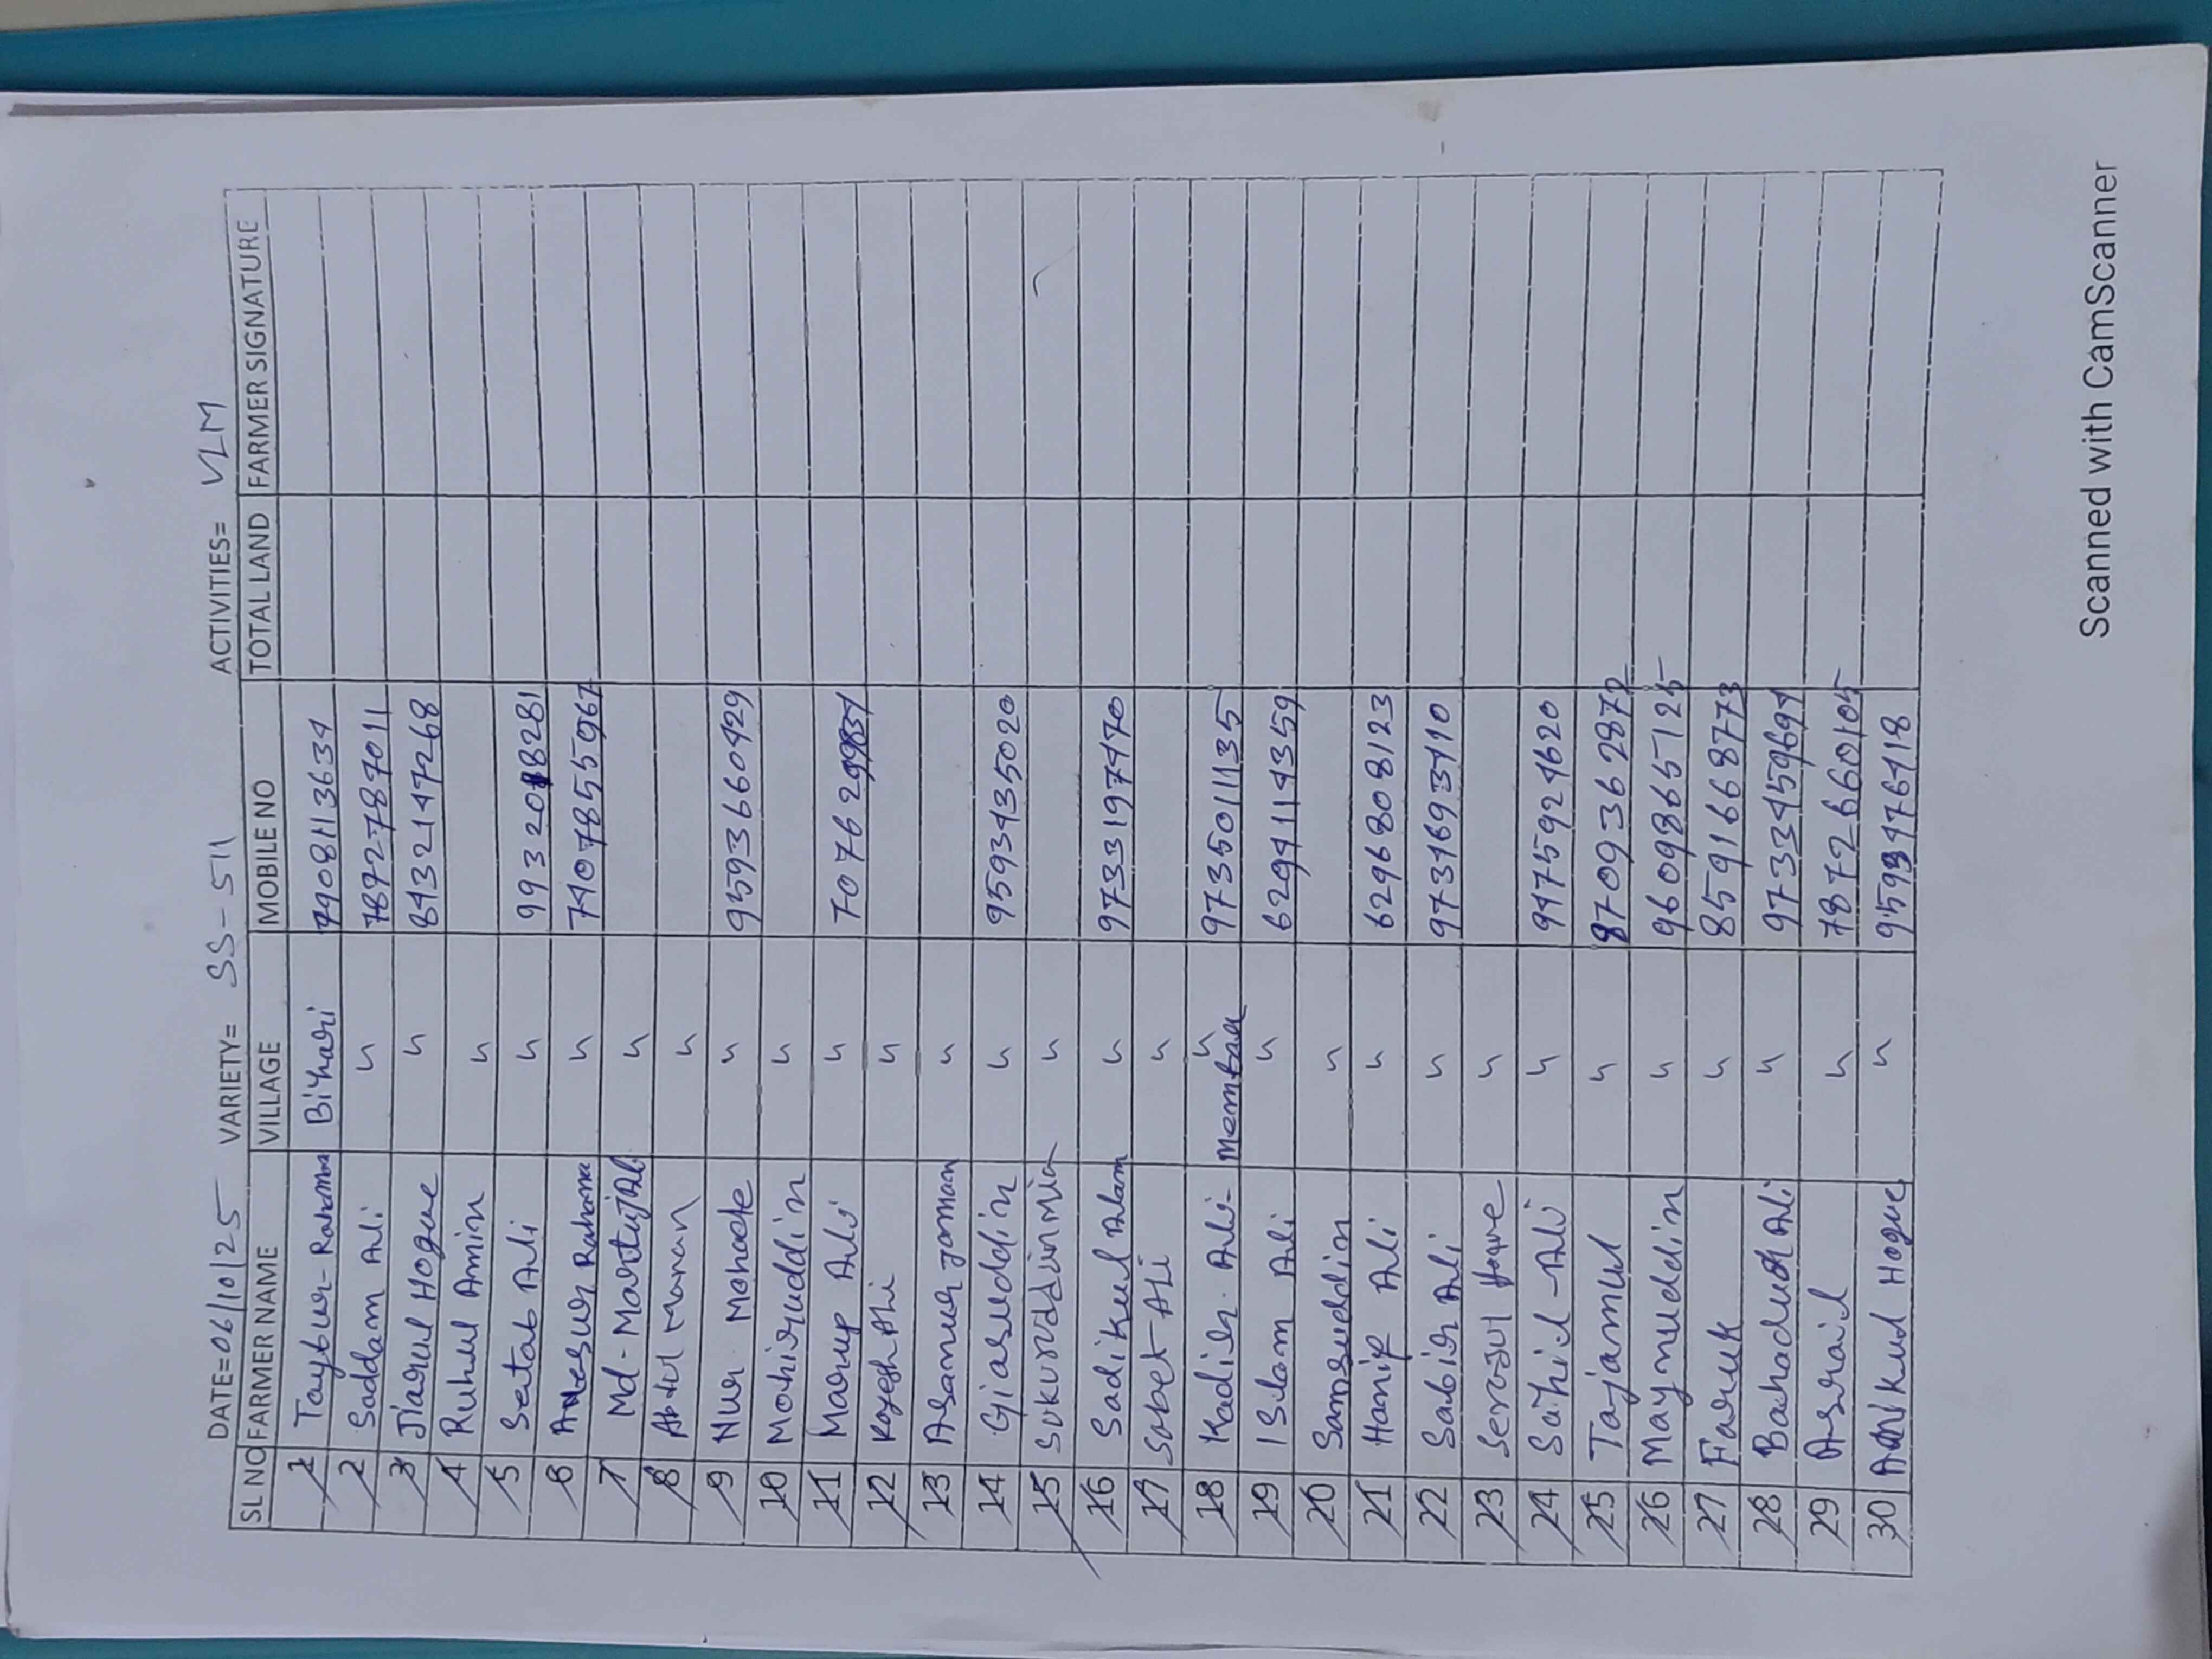 DATE=06/10/25 VARIETY= SS-511 ACTIVITIES= VLM
SL NO FARMER NAME VILLAGE MOBILE NO TOTAL LAND FARMER SIGNATURE
1 Taybur-Rahama Bihari 9908113634
2 Saddam Ali " 7872787011
3 Jiarul Hoque " 8432147268
4 Ruhul Amin "
5 Setab Ali " 9932018281
6 Anesur Rahama " 7407855967
7 Md-Martuj Ali "
8 Abdul Manan "
9 Nur Mohade " 9593660429
10 Mohiruddin "
11 Marup Ali " 70762
12 Kayesh Ali "
13 Asanur Jaman "
14 Giasuddin " 9593435020
15 Sukuruddin Mia "
16 Sadikul Alam " 9733197470
17 Sobet Ali "
18 Kadir Ali- Membar " 9735011135
19 ISlam Ali " 6294114359
20 Samsuddin "
21 Hanif Ali " 6296808123
22 Sabir Ali " 9734693410
23 Serajul Hoque "
24 Sahid-Ali " 9475924620
25 Tajamul " 8709362872
26 Maynuddin " 9609865125
27 Faruk " 8591668773
28 Bahadur Ali " 9733459694
29 Asraid " 7872660105
30 Amikul Hoque " 9593476418
Scanned with CamScanner